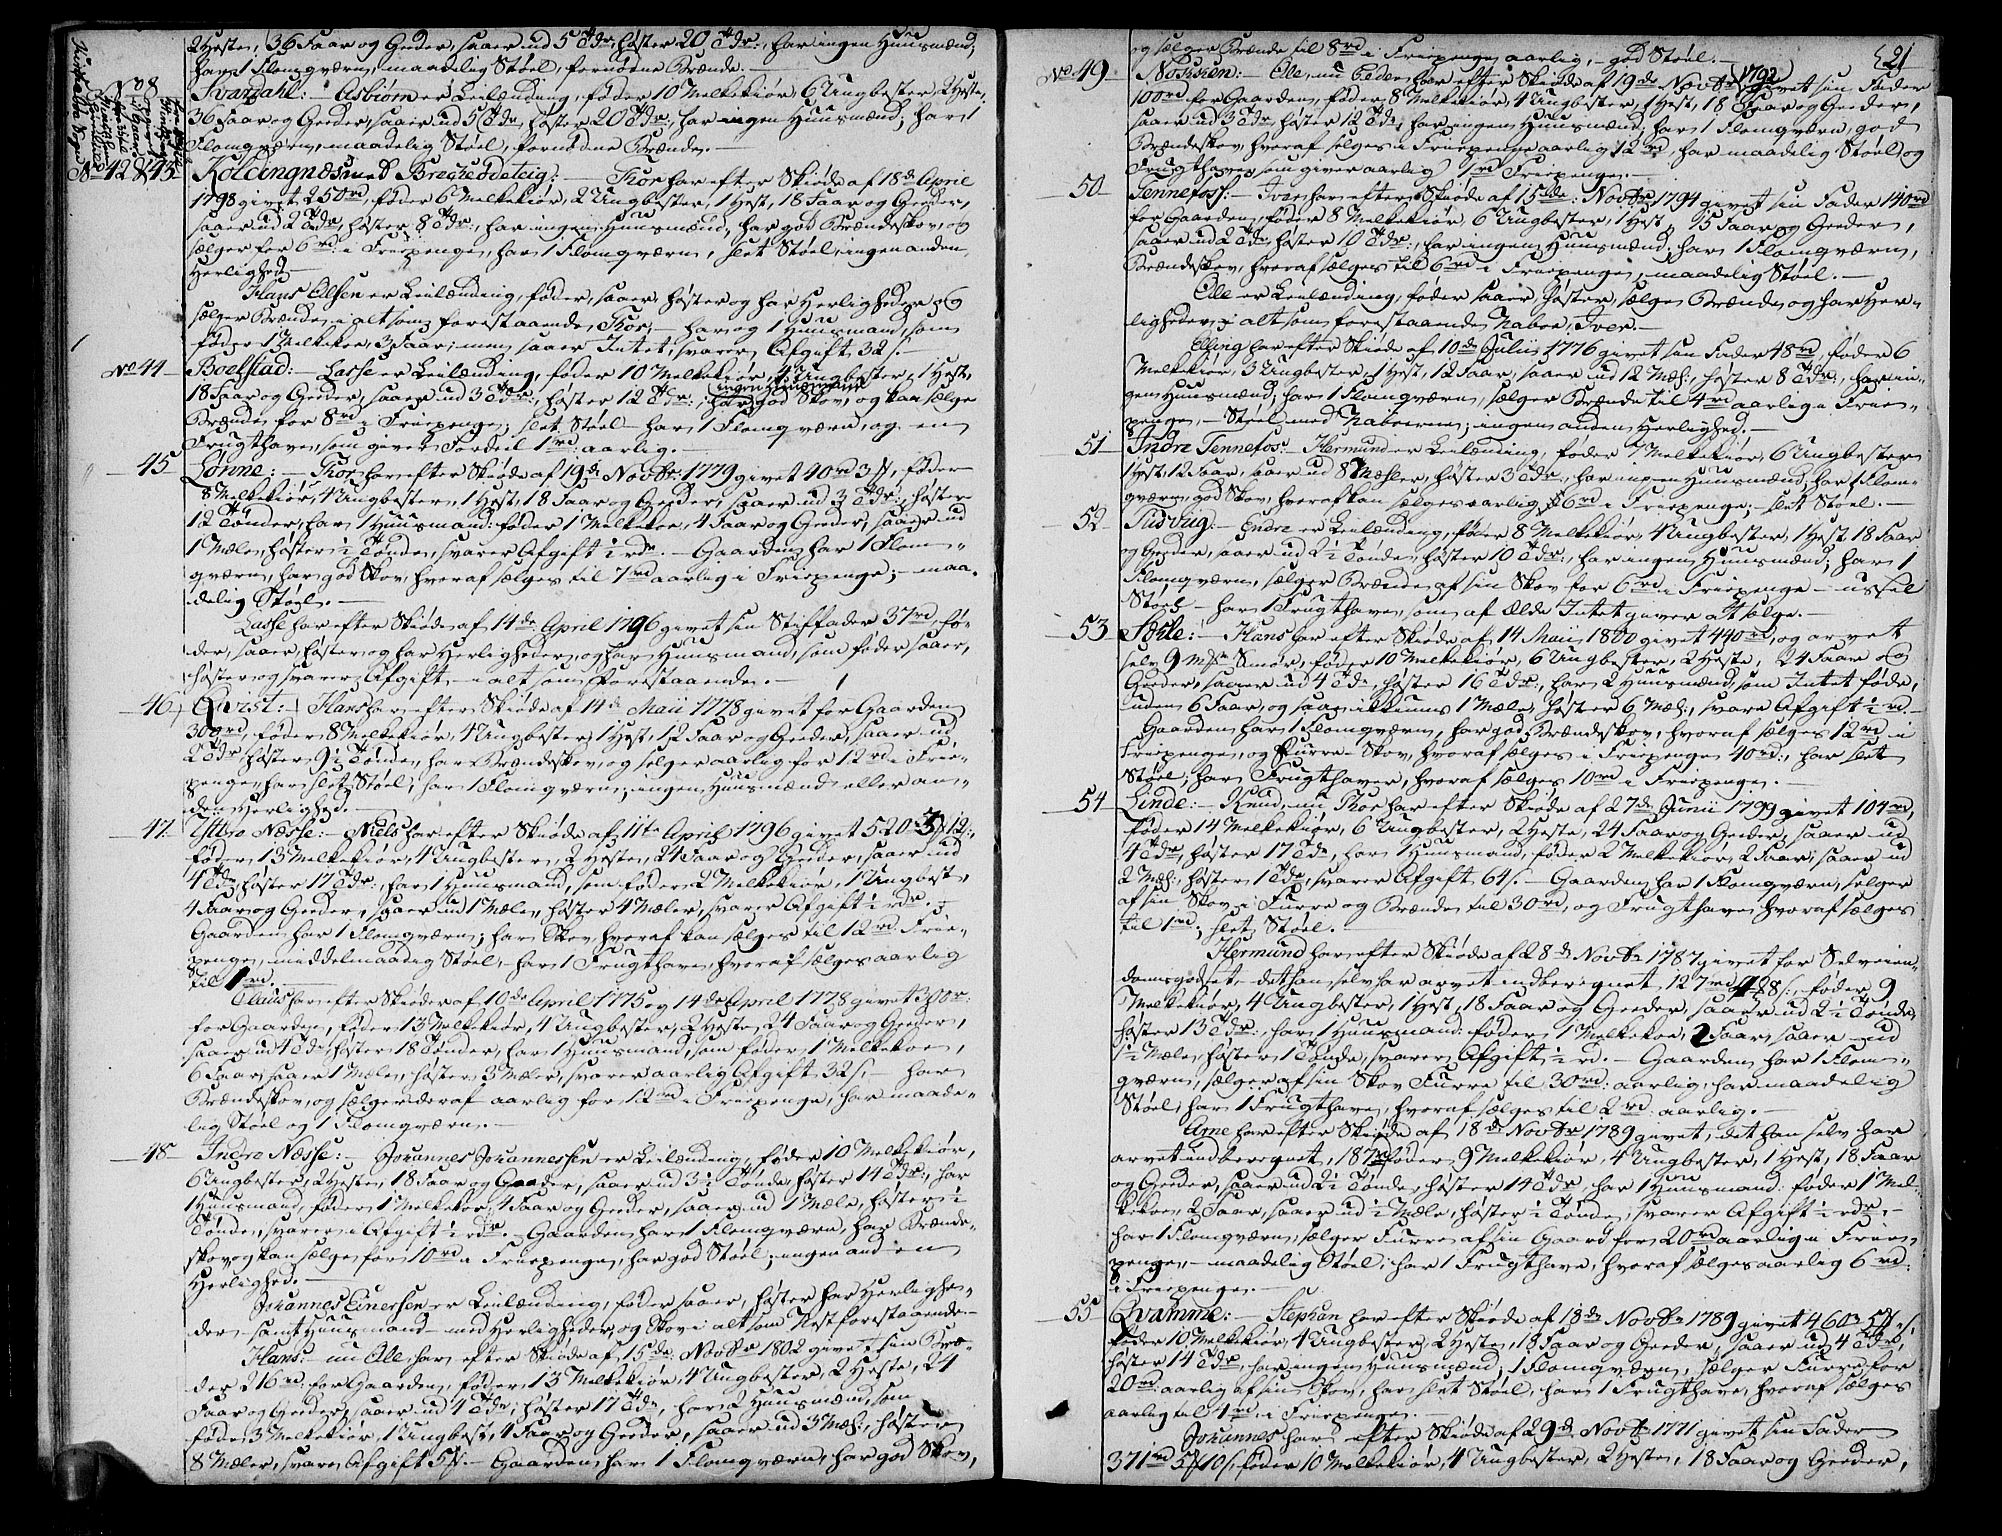 2 Heste, 36 Faar og Geeder, saaer ud 5 Tdr, høster 20 Tdr:, har ingen Huusmænd,
har 1 Flomqværn, maadelig Støel, fornødne Brænde. —
No 8
Svardahl: — Asbiørn er Leilænding, føder 10 Melkekiør, 6 Ungbester, 2 Heste,
36 Faar og Geeder, saaer ud 5 Tdr, høster 20 Tdr:, har ingen Huusmænd; har 1
Flomqværn, maadelig Støel, fornødne Brænde. —
No 42 & 43 Koldingnæs med Brekkedeteig: — Thor har efter Skiøde af 18de April
1798 givet 250 rd, føder 6 Melkekiør, 2 Ungbester, 1 Hest, 18 Faar og Geeder,
saaer ud 2 Tdr, høster 8 Tdr:, har ingen Huusmænd, har god Brændeskov, og
sælger for 6 rd: i Friepenge, har 1 Flomqværn, slet Støel, ingen anden
Herlighed. —
Hans Olsen er Leilænding, føder, saaer, høster og har Herligheder og
sælger Brænde i alt som forestaaende Thor, — har og 1 Huusmand, som
føder 1 Melkekoe, 3 Faar; men saaer Intet, svarer Afgift 32 s. —
No 44 — Boelstad: — Lasse er Leilænding, føder 10 Melkekiør, 4 Ungbester, 1 Hest,
18 Faar og Geeder, saaer ud 3 Tdr:, høster 12 Tdr:, har ingen Huusmænd god Skov, og kan sælge
Brænde for 8 rd i Friepenge; slet Støel — har 1 Flomqværn, og en
Frugthave, som giver Fordeel 1 rd: aarlig. —
— 45 Lønne: — Thor har efter Skiøde af 19de Novbr: 1779 givet 40 rd 3 #, føder
8 Melkekiør, 4 Ungbester, 1 Hest, 18 Faar og Geeder, saaer ud 3 Tdr:, høster
12 Tønder, har 1 Huusmand: føder 1 Melkekoe, 4 Faar og Geeder, saaer ud
1 Mæle, høster ½ Tønde, svarer Afgift ½ rdr. — Gaarden har 1 Flom-
qværn, har god Skov, hvoraf sælges til 7 rd aarlig i Friepenge; — maa-
delig Støel. —
Lasse har efter Skiøde af 14de April 1796 givet sin Stiffader 37 rd, fø-
der, saaer, høster og har Herligheder, og har Huusmand, som føder saaer,
høster og svarer Afgift — i alt som forestaaende. —
— 46 Qvist: — Hans har efter Skiøde af 14de Maii 1778 givet for Gaarden
309 rd, føder 8 Melkekiør, 4 Ungbester, 1 Hest, 12 Faar og Geeder, saaer ud
2 Tdr høster 9½ Tønde, har Brændeskov, og sælger aarlig for 12 rd i Frie-
penge, har slet Støel; har 1 Flomqværn; ingen Huusmænd eller an-
den Herlighed. —
— 47. Yttre Næsse: — Niels har efter Skiøde af 11te April 1796 givet 520 r 3 # 12:,
føder 13 Melkekiør, 4 Ungbester, 2 Heste, 24 Faar og Geeder, saaer ud
4 Tdr, høster 17 Tdr:, har 1 Huusmand, som føder 2 Melkekiør, 1 Ungbest,
4 Faar og Geeder, saaer ud 1 Mæle, høster 4 Mæler, svarer Afgift ½ rdr. —
Gaarden har 1 Flomqværn; har Skov, hvoraf kan sælges til 12 rd Frie-
penge, middelmaadig Støel, — har 1 Frugthave, hvoraf sælges aarlig
til 1 rd. —
Claus har efter Skiøder af 10de April 1775 og 14de April 1778 givet 300 r:
for Gaarden, føder 13 Melkekiør, 4 Ungbester, 2 Heste, 24 Faar og Geeder,
saaer ud 4 Tdr høster 18 Tønder, har 1 Huusmand, som føder 1 Melkekoe,
6 Faar, saaer 1 Mæle, høster 3 Mæler, svarer aarlig Afgift 32 s, — har
Brændeskov, og sælger deraf aarlig for 12 rd i Friepenge, har maade-
lig Støel og 1 Flomqværn. —
— 48 — Indre Næsse: — Johannes Johannessen er Leilænding, føder 10 Melkekiør,
6 Ungbester, 2 Heste, 18 Faar og Geeder, saaer ud 3½ Tønde, høster 14 Tdr:, har
1 Huusmand, føder 1 Melkekoe, 4 Faar og Geeder, saaer ud 1 Mæle, høster ½
Tønde, svarer i Afgift ½ rdr. — Gaarden har 1 Flomqværn, har Brænde-
skov og kan sælge for 10 rd i Friepenge, har god Støel; ingen anden
Herlighed. —
Johannes Einersen er Leilænding, føder saaer, høster har Herlighe-
der — samt Huusmand — med Herligheder, og Skov i alt som Næstforestaaende —
Hans: — nu Ole, har efter Skiøde af 15de Novbr 1802 givet sin Bro-
der 216 rd: for Gaarden, føder 13 Melkekiør, 4 Ungbester, 2 Heste, 24
Faar og Geeder, saaer ud 4 Tdr, høster 17 Tdr, har 2 Huusmænd, som
føde 3 Melkekiør, 1 Ungbest, 4 Faar og Geeder, saaer ud 3 Mæl:, høster
8 Mæler, svare Afgift 5 #. — Gaarden har 1 Flomqværn, har god Skov,
og sælger Brænde til 8 rd i Friepenge aarlig, — god Støel. —
21
No 49 Nossen: — Ole, nu Peder har efter Skiøde af 19de Novbr 1792 givet sin Fader
100 rd for Gaarden, føder 8 Melkekiør, 4 Ungbester, 1 Hest, 18 Faar og Geeder,
saaer ud 3 Tdr, høster 12 Tdr, har ingen Huusmænd, har 1 Flomqværn, god
Brændeskov, hvoraf sælges i Friepenge aarlig 12 rd, har maadelig Støel og
Frugthave, som giver aarlig 1 rd Friepenge. —
50 Tennefoss: — Iver har efter Skiøde af 15de: Novbr 1794 givet sin Fader 140 rd
for Gaarden, føder 8 Melkekiør, 6 Ungbester, 1 Hest, 15 Faar og Geeder,
saaer ud 2 Tdr, høster 10 Tdr:, har ingen Huusmænd; har 1 Flomqværn,
Brændeskov, hvoraf sælges til 6 rd i Friepenge, maadelig Støel. —
Ole er Leilænding, føder saaer, høster, sælger Brænde og har Her-
ligheder, i alt som forestaaende Naboe, Iver. —
Elling har efter Skiøde af 10de Julii 1776 givet sin Fader 48 rd, føder 6
Melkekiør, 3 Ungbester, 1 Hest, 12 Faar, saaer ud 12 Mæl:, høster 8 Tdr:, har in-
gen Huusmænd, har 1 Flomqværn, sælger Brænde til 4 rd aarlig i Frie-
penge, — Støel med Naboerne; ingen anden Herlighed. —
51 Indre Tennefos: — Hermund er Leilænding, føder 7 Melkekiør, 6 Ungbester
1 Hest, 12 Faar, saaer ud 8 Mæler, høster 3 Tdr, har ingen Huusmænd, har 1 Flom-
qværn, god Skov, hvoraf kan sælges aarlig 6 rd i Friepenge; — slet Støel. —
52 Tudviig: — Endre er Leilænding, føder 8 Melkekiør, 4 Ungbester, 1 Hest 18 Faar
og Geeder, saaer ud 2½ Tønde, høster 10 Tdr:, har ingen Huusmænd; har 1
Flomqværn, sælger Brænde af sin Skov for 6 rd i Friepenge — ussel
Støel — har 1 Frugthave, som af Ælde Intet giver at sælge. —
53 Sæle: — Hans har efter Skiøde af 14 Maii 1800 givet 440 rd, og arvet
selv 9 Mrk Smør, føder 10 Melkekiør, 6 Ungbester, 2 Heste, 24 Faar og
Geeder, saaer ud 4 Tdr, høster 16 Tdr:, har 2 Huusmænd, som Intet føde,
uden 6 Faar, og saae ikkuns 1 Mæle, høster 6 Mæl:, svare Afgift ½ rd —
Gaarden har 1 Flomqværn, har god Brændeskov, hvoraf sælges 12 rd i
Friepenge, og Furre-Skov, hvoraf sælges i Friepenge 40 rd:, har slet
Støel; har Frugthaver, hvoraf sælges 10 rd i Friepenge. —
54 Linde: — Knud, nu Thor har efter Skiøde af 27de Junii 1799 givet 104 rd,
føder 14 Melkekiør, 6 Ungbester, 2 Heste, 24 Faar og Geeder, saaer ud
4 Tdr, høster 17 Tdr, har 1 Huusmand, føder 2 Melkekiør, 2 Faar, saaer ud
2 Mæl:, høster 1 Tdr, svarer Afgift 64 s. — Gaarden har 1 Flomqværn, sælger
af sin Skov i Furre og Brænde til 30 rd, og Frugthave hvoraf sælges
til 1 rd; slet Støel. —
Hermund har efter Skiøde af 28de Novbr 1787 givet for Selveien-
domsgodset, det han selv har arvet indberegnet 127 rd 4 # 8 s:, føder 9
Melkekiør, 4 Ungbester, 1 Hest, 18 Faar og Geeder, saaer ud 2½ Tønde,
høster 13 Tdr:, har 1 Huusmand: føder 1 Melkekoe, 2 Faar, saaer ud
1½ Mæle, høster 1 Tønde, svarer Afgift ½ rd. — Gaarden har 1 Flom-
qværn, sælger af sin Skov Furre til 30 rd: aarlig, har maadelig
Støel, har 1 Frugthave, hvoraf sælges til 2 rd: aarlig. —
Arne har efter Skiøde af 18de Novbr 1789 givet, det han selv har
arvet indberegnet, 187 rd, føder 9 Melkekiør, 4 Ungbester, 1 Hest, 18 Faar
og Geeder, saaer ud 2½ Tønde, høster 14 Tdr, har 1 Huusmand: føder 1 Mel-
kekoe, 2 Faar, saaer ud ½ Mæle, høster ½ Tønde, svarer Afgift ½ rdr. —
har 1 Flomqværn, sælger Furre af sin Gaard for 20 rd aarlig i Frie-
penge, — maadelig Støel; har 1 Frugthave, hvoraf sælges aarlig 6 rd:
i Friepenge. —
55 Qvamme: — Stephan har efter Skiøde af 18de Novbr 1789 givet 460 r 5 # — s,
føder 10 Melkekiør, 4 Ungbester, 2 Heste, 18 Faar og Geeder, saaer ud 4 Tdr,
høster 14 Tdr, har ingen Huusmænd; 1 Flomqværn, sælger Furre for
20 rd: aarlig af sin Skov, har slet Støel, har 1 Frugthave, hvoraf sælges
aarlig til 4 rd: i Friepenge. —
Johannes har efter Skiøde af 29de Novbr 1771 givet sin Fader
371 rd 5 # 10 s, føder 10 Melkekiør, 4 Ungbester, 2 Heste, 18 Faar og Geeder,